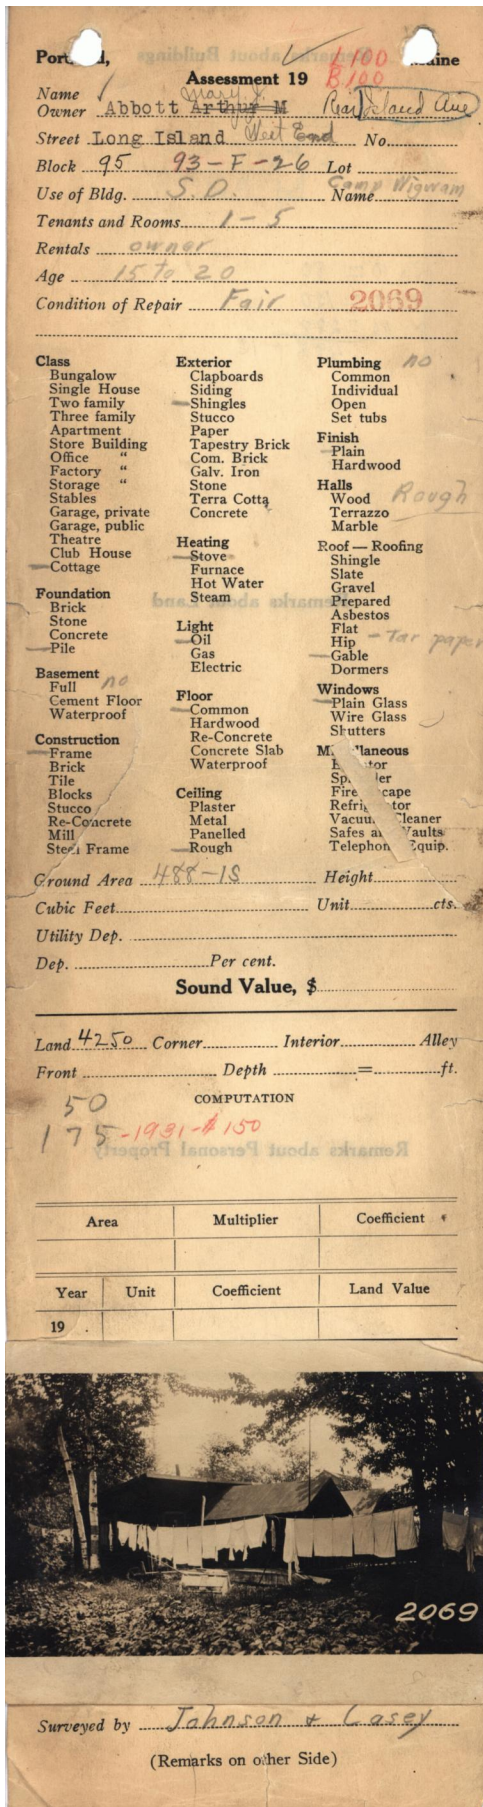 Portland, Maine
L 100
Assessment 19
B 100
Name
Mary J.
Owner Abbott Arthur M Rear Island Ave
Street Long Island West End No.
Block 95 93-F-26 Lot
Camp Wigwam
Use of Bldg. S.D. Name
Tenants and Rooms 1-5
Rentals owner
Age 15 to 20
Condition of Repair Fair 2069
Class
Bungalow
Single House
Two family
Three family
Apartment
Store Building
Office "
Factory "
Storage "
Stables
Garage, private
Garage, public
Theatre
Club House
Cottage
Foundation
Brick
Stone
Concrete
Pile
Basement
Full no
Cement Floor
Waterproof
Construction
Frame
Brick
Tile
Blocks
Stucco
Re-Concrete
Mill
Steel Frame
Exterior
Clapboards
Siding
Shingles
Stucco
Paper
Tapestry Brick
Com. Brick
Galv. Iron
Stone
Terra Cotta
Concrete
Heating
Stove
Furnace
Hot Water
Steam
Light
Oil
Gas
Electric
Floor
Common
Hardwood
Re-Concrete
Concrete Slab
Waterproof
Ceiling
Plaster
Metal
Panelled
Rough
Plumbing no
Common
Individual
Open
Set tubs
Finish
Plain
Hardwood
Halls
Wood Rough
Terrazzo
Marble
Roof — Roofing
Shingle
Slate
Gravel
Prepared
Asbestos
Flat
Hip - Tar paper
Gable
Dormers
Windows
Plain Glass
Wire Glass
Shutters
Miscellaneous
Elevator
Sprinkler
Fire Escape
Refrigerator
Vacuum Cleaner
Safes and Vaults
Telephone Equip.
Ground Area 488-1S Height
Cubic Feet Unit cts.
Utility Dep.
Dep. Per cent.
Sound Value, $
Land 4250 Corner Interior Alley
Front Depth = ft.
50 COMPUTATION
175 -1931-$150
Remarks about Personal Property
Area Multiplier Coefficient
Year Unit Coefficient Land Value
19
2069
Surveyed by Johnson & Casey
(Remarks on other Side)